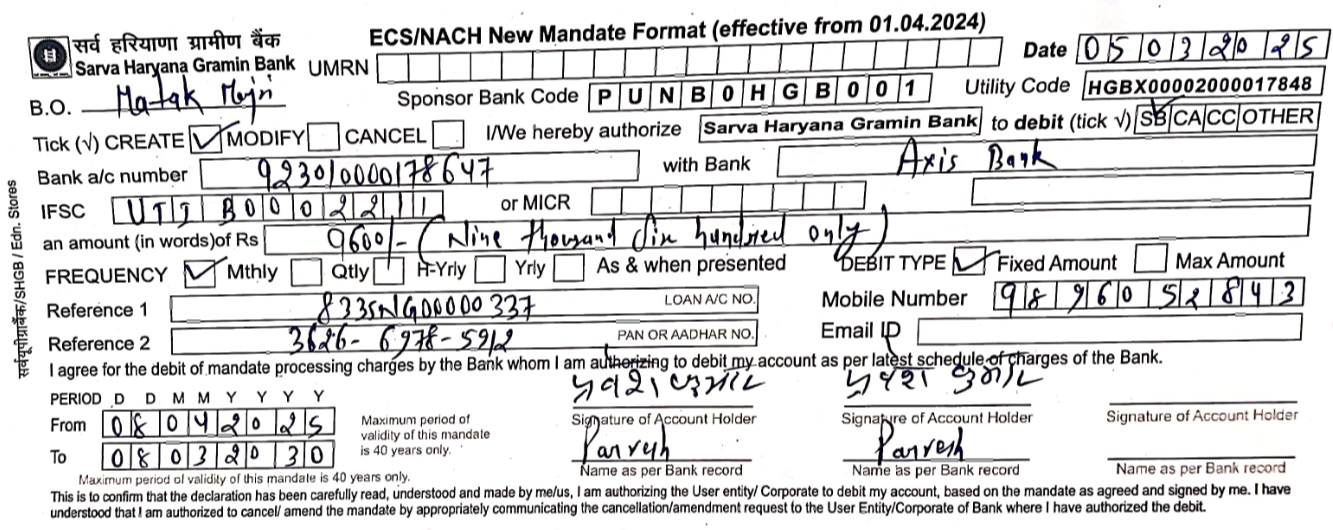 ECS/NACH New Mandate Format (effective from 01.04.2024)
सर्व हरियाणा ग्रामीण बैंक
Sarva Haryana Gramin Bank UMRN Date 05032025
B.O. Sponsor Bank Code PUNB0HGB001 Utility Code HGBX00002000017848
Tick (√) CREATE ✓ MODIFY CANCEL I/We hereby authorize Sarva Haryana Gramin Bank to debit (tick √) SB ✓ CA CC OTHER
Bank a/c number 923010000178647 with Bank Axis Bank
IFSC UTIB0002211 or MICR
an amount (in words)of Rs 9600/- (Nine thousand Six hundred only)
FREQUENCY ✓ Mthly Qtly H-Yrly Yrly As & when presented DEBIT TYPE ✓ Fixed Amount Max Amount
Reference 1 8335NG00000337 LOAN A/C NO. Mobile Number 9896052843
Reference 2 3626-6978-5912 PAN OR AADHAR NO. Email ID
I agree for the debit of mandate processing charges by the Bank whom I am authorizing to debit my account as per latest schedule of charges of the Bank.
PERIOD D D M M Y Y Y Y
From 08042025 Maximum period of validity of this mandate is 40 years only. Signature of Account Holder Signature of Account Holder Signature of Account Holder
To 08032030 Parvesh Parvesh
Name as per Bank record Name as per Bank record Name as per Bank record
Maximum period of validity of this mandate is 40 years only.
This is to confirm that the declaration has been carefully read, understood and made by me/us, I am authorizing the User entity/ Corporate to debit my account, based on the mandate as agreed and signed by me. I have
understood that I am authorized to cancel/ amend the mandate by appropriately communicating the cancellation/amendment request to the User Entity/Corporate of Bank where I have authorized the debit.
सर्वयूपीग्राबैंक/SHGB / Edn. Stores